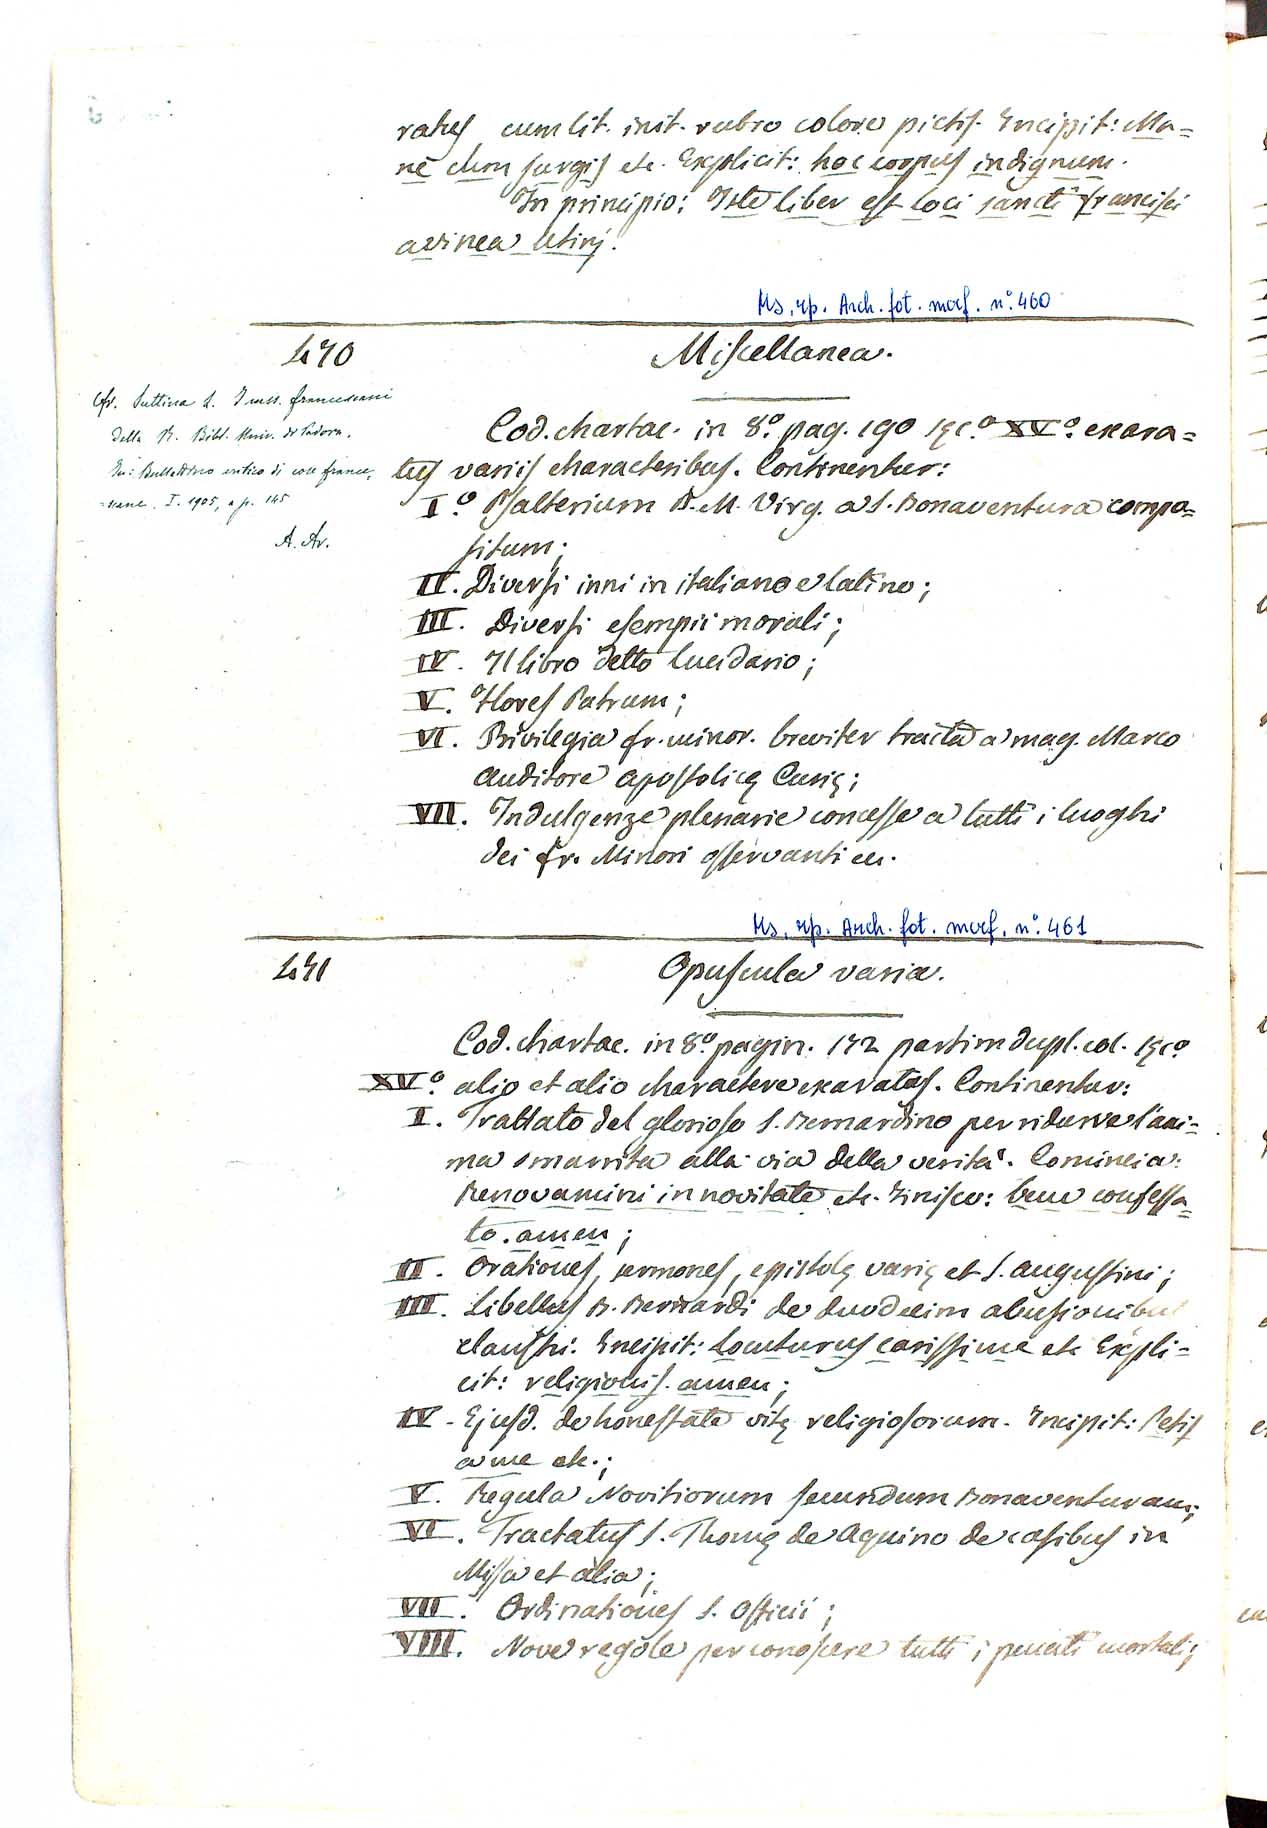 ratus cum lit. init. rubro colore pictis. Incipit: Ma=
ne dum surgis etc. Explicit: hoc corpus indignum.
In principio: Iste liber est loci sancti francisci
a vinea Utini.
Ms. rp. Arch. fot. morf. n°. 460
470
Miscellanea.
Cfr. Suttina L. I mss. francescani
della R. Bibl. Univ. di Padova.
In: Bullettino critico di cose france=
scane. I. 1905, a p. 145
A. Av.
Cod. chartac. in 8.° pag. 190 sęc.° XV.° exara=
tus variis characteribus. Continentur:
I.° Psalterium B. M. Virg. a S. Bonaventura compo=
situm;
II. Diversi inni in italiano e latino;
III. Diversi esempii morali;
IV. Il libro detto Lucidario;
V. Flores Patrum;
VI. Privilegia fr. minor. breviter tracta a mag. Marco
auditore apostolicę Curię;
VII. Indulgenze plenarie concesse a tutti i luoghi
dei fr. Minori osservanti ec.
Ms. rp. Arch. fot. morf. n°. 461
471
Opuscula varia.
Cod. chartac. in 8.° pagin. 172 partim dupl. col. sęc.°
XV.° alio et alio charactere exaratus. Continentur:
I. Trattato del glorioso S. Bernardino per ridurre l'ani=
ma smarrita alla via della verità. Comincia:
Renovamini in novitate etc. Finisce: bene confessa=
to. amen;
II. Orationes, sermones, epistolę varię et S. Augustini;
III. Libellus B. Bernardi de duodecim abusionibus
claustri. Incipit: Locuturus carissime etc Expli=
cit: religionis. amen;
IV. Ejusd. de honestate vitę religiosorum. Incipit: Petis
a me etc.;
V. Regula Novitiorum secundum Bonaventuram;
VI. Tractatus S. Thomę de Aquino de casibus in
Missa et alia;
VII. Ordinationes S. Officii;
VIII. Nove regole per conoscere tutti i peccati mortali;